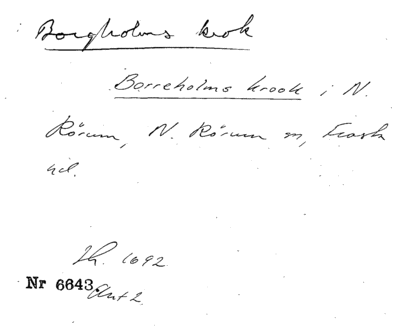 Borgholms krok
Borreholms krook i N.
Rörum, N. Rörum sn, Frosta
hd.
Jb. 1692
Nr 6643.